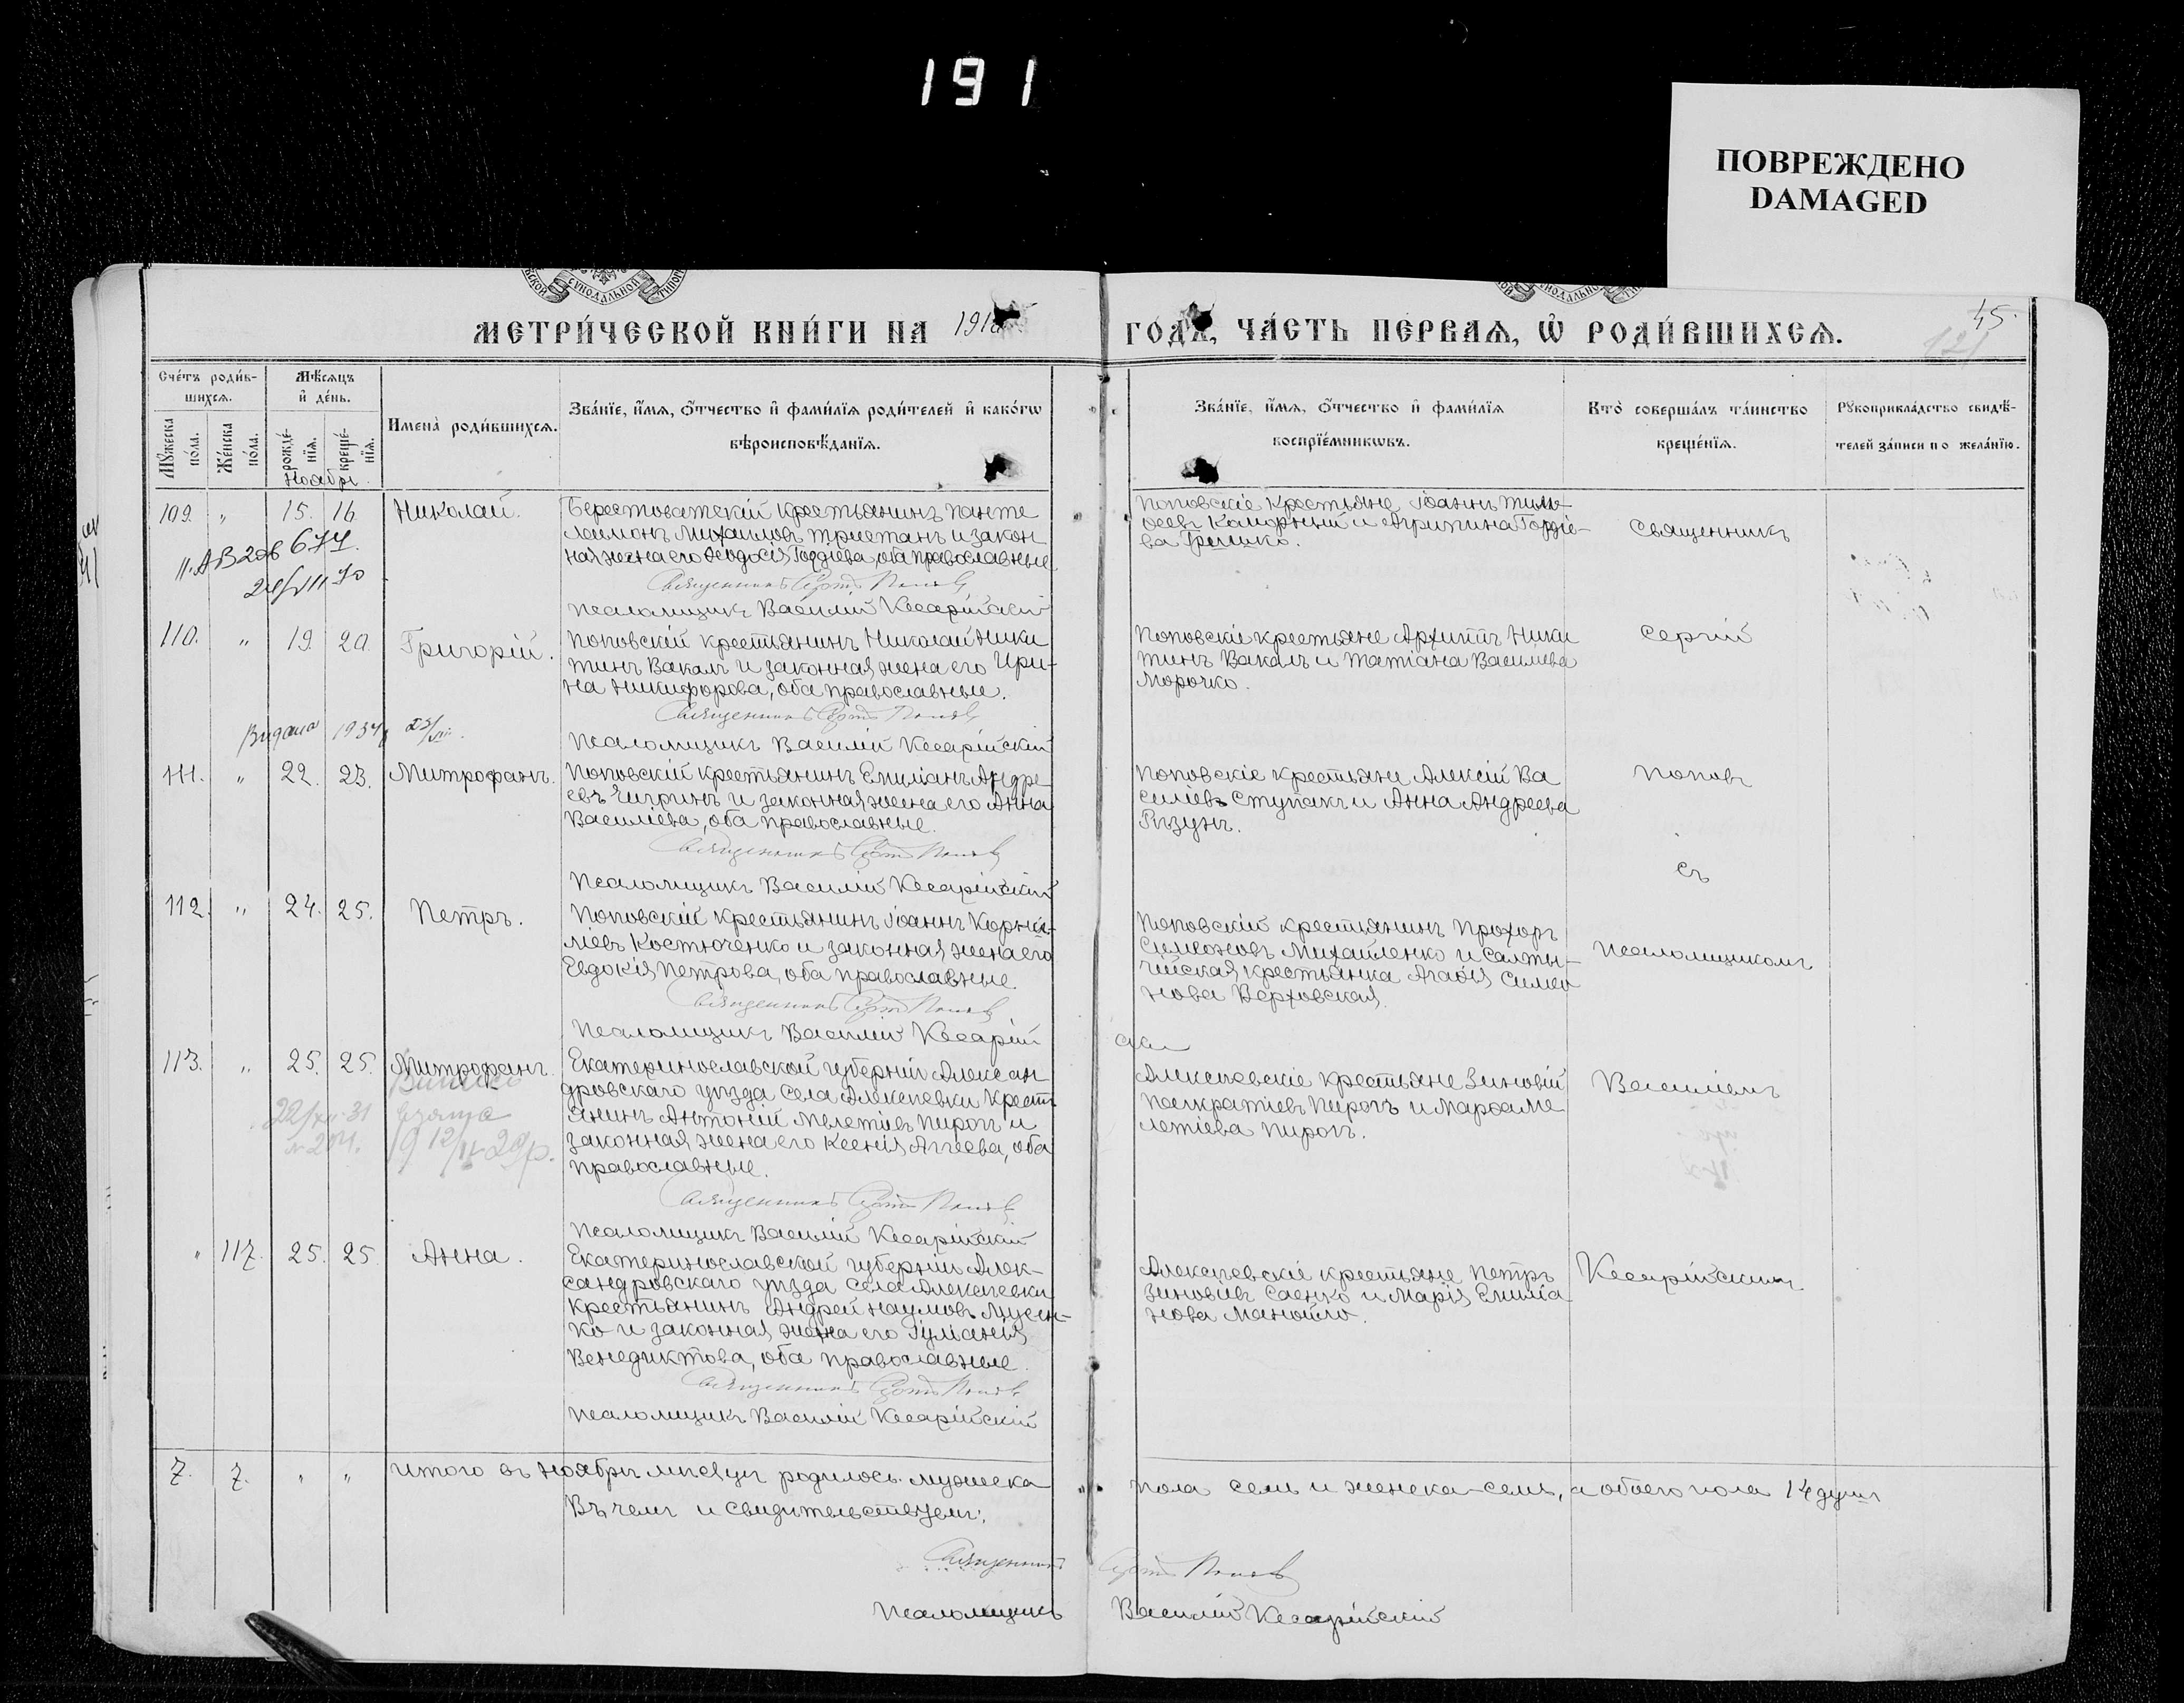 191
ПОВРЕЖДЕНО
DAMAGED
МЕТРИ́ЧЕСКОЙ КНИ́ГИ НА 191
ГОДЪ, ЧА́СТЬ ПЕ́РВАЯ, Ѡ РОДИ́ВШИХСЯ.
45.
121
Сче́тъ роди́в-
шихся.
Мѣ́сяцъ
и҆ де́нь.
Мꙋ́жеска по́ла.
Же́нска по́ла.
рожде́-
нїя.
креще́-
нїя.
Имена̀ роди́вшихся.
Зва́нїе, и҆́мя, ѻ҆́тчество и҆ фами́лїя роди́телей и҆ како́гѡ
вѣроисповѣ́данїя.
Зва́нїе, и҆́мя, ѻ҆́тчество и҆ фами́лїя
воспрїе́мникѡвъ.
Кто̀ соверша́лъ та́инство
креще́нїя.
Рꙋкоприкла́дство свидѣ́-
телей за́писи по жела́нїю.
Ноябрь.
109. " 15. 16. Николай.
Берестоватскій крестьянинъ Панте
леимонъ Михаиловъ Триетанъ и закон
ная жена его Ѳеодосія Гордіева, оба православные.
Священникъ Сергій Поповъ
Псаломщикъ Василій Кесарійскій
Поповскіе крестьяне Іоаннъ Тимо-
ѳеевъ Каморный и Агрипина Гордіе-
ва Гришко.
Священникъ
II.АВ 208 677.
110. " 19. 20. Григорій.
Поповскій крестьянинъ Николай Ники
тинъ Вакалъ и законная жена его Ири-
на Никифорова, оба православные.
Священникъ Сергій Поповъ
Псаломщикъ Василій Кесарійскій
Поповскіе крестьяне Архипъ Ники
тинъ Вакалъ и Татіана Василіева
Морочко.
Сергій
Видана 1934
111. " 22. 23. Митрофанъ.
Поповскій крестьянинъ Емиліанъ Андре
евъ Чигринъ и законная жена его Анна
Василіева, оба православные.
Священникъ Сергій Поповъ
Псаломщикъ Василій Кесарійскій
Поповскіе крестьяне Алексій Ва
силіевъ Ступакъ и Анна Андреева
Рѣзунъ.
Поповъ
съ
112. " 24. 25. Петръ.
Поповскій крестьянинъ Іоаннъ Корни-
ліевъ Костюченко и законная жена его
Евдокія Петрова, оба православные.
Священникъ Сергій Поповъ
Псаломщикъ Василій Кесарій
скій
Поповскій крестьянинъ Прохоръ
Симеоновъ Михайленко и Салты-
чійская крестьянка Агаѳія Симео
нова Верховская.
псаломщикомъ
113. " 25. 25. Митрофанъ.
Екатеринославской губерніи Алексан
дровскаго уѣзда села Алексеевки крестъ
янинъ Антоній Мелетіевъ Пирогъ и
законная жена его Ксенія Аггеева, оба
православные.
Священникъ Сергій Поповъ
Псаломщикъ Василій Кесарійскій
Алексеевскіе крестьяне Зиновій
Панкратіевъ Пирогъ и Марѳа Ме
летіева Пирогъ.
Василіемъ
" 117. 25. 25. Анна.
Екатеринославской губерніи Алек-
сандровскаго уѣзда села Алексѣевки
крестьянинъ Андрей Наумовъ Мусен-
ко и законная жена его Гуліанія
Венедиктова, оба православные.
Священникъ Сергій Поповъ
Псаломщикъ Василій Кесарійскій
Алексѣевскіе крестьяне Петръ
Зиновіевъ Саенко и Марія Емиліа
нова Манойло.
Кесарійскимъ
7. 7. " " Итого въ ноябрѣ мѣсяцѣ родилось мужеска
пола семь и женска-семь, а обоего пола 14 душъ
Въ чемъ и свидѣтельствуемъ:
Священникъ Сергій Поповъ
Псаломщикъ Василій Кесарійскій